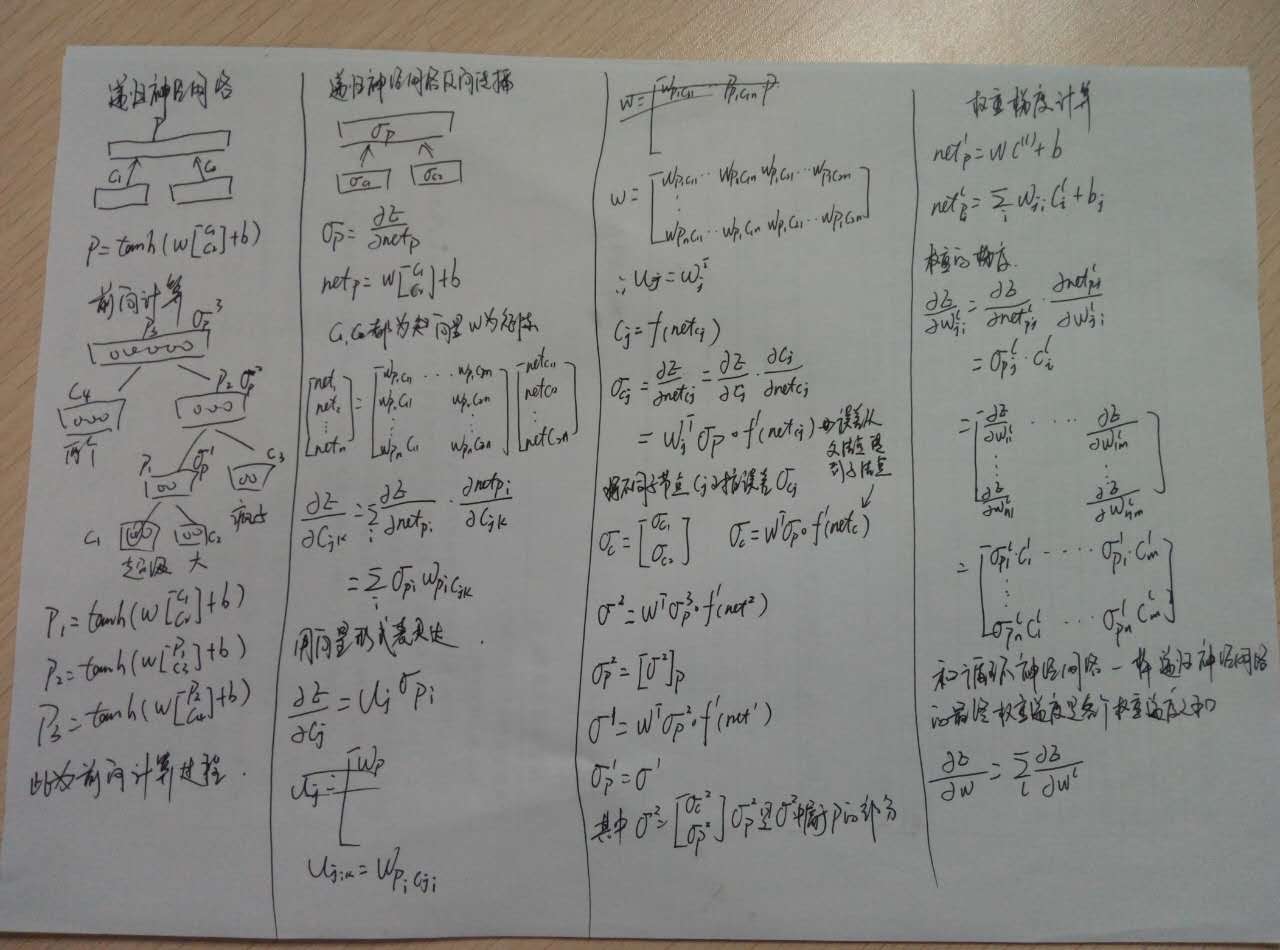 递归神经网络
P
C₁ C₂
P=tanh(W[C₁ C₂]+b)
前向计算
P₃ σp³
C₄ P₂ σp²
P₁ σp¹ C₃
C₁ C₂
超级 大
P₁=tanh(W[C₁ C₂]+b)
P₂=tanh(W[P₁ C₃]+b)
P₃=tanh(W[P₂ C₄]+b)
此为前向计算过程.
递归神经网络反向传播
σp
σc₁ σc₂
σp=∂E/∂netp
netp=W[C₁ C₂]+b
C₁,C₂都为 向量 W为矩阵
[net₁ net₂ ⋮ netn]=[Wp₁c₁₁ ··· Wp₁c₂n Wp₂c₁₁ Wp₂c₂n ⋮ Wpnc₁₁ Wpnc₂n]
∂E/∂Cjk=Σi ∂E/∂netpi · ∂netpi/∂Cjk
=Σi σpi Wpicjk
用向量形式表达
∂E/∂Cj=Uj σpi
Ujik=Wpicji
W=[Wp₁c₁₁··· Wp₁c₁n Wp₁c₂₁··· Wp₁c₂n
⋮
Wpnc₁₁··· Wp₁c₁n Wp₁c₂₁··· Wp₁c₂n]
∴Uj=Wjᵀ
Cj=f(netcj)
σcj=∂E/∂netcj=∂E/∂Cj · ∂Cj/∂netcj
=Wjᵀσp∘f'(netcj) 误差从
父结点
到子结点
将不同子节点Cj 误差σcj
σc=[σc₁ σc₂] σc=Wᵀσp∘f'(netc)
σ²=Wᵀσp³∘f'(net²)
σp²=[σ²]p
σ¹=Wᵀσp²∘f'(net¹)
σp¹=σ¹
其中σ²=[σc² σp²] σp²是σ²中属于P的部分
权重梯度计算
netpˡ=WC⁽ˡ⁾+b
netpjˡ=Σi Wji Ciˡ+bj
权重的梯度
∂E/∂Wjiˡ=∂E/∂netpjˡ · ∂netpjˡ/∂Wjiˡ
=σpjˡ·Ciˡ
=[∂E/∂W₁₁ˡ ··· ∂E/∂W₁mˡ
⋮ ⋮
∂E/∂Wn₁ˡ ∂E/∂Wnmˡ]
=[σp₁ˡC₁ˡ ···· σp₁ˡ·Cmˡ
⋮
σpnˡC₁ˡ ··· σpnˡCmˡ]
和循环神经网络一样递归神经网络
的最终权重梯度是各个权重梯度之和
∂E/∂W=Σl ∂E/∂Wˡ